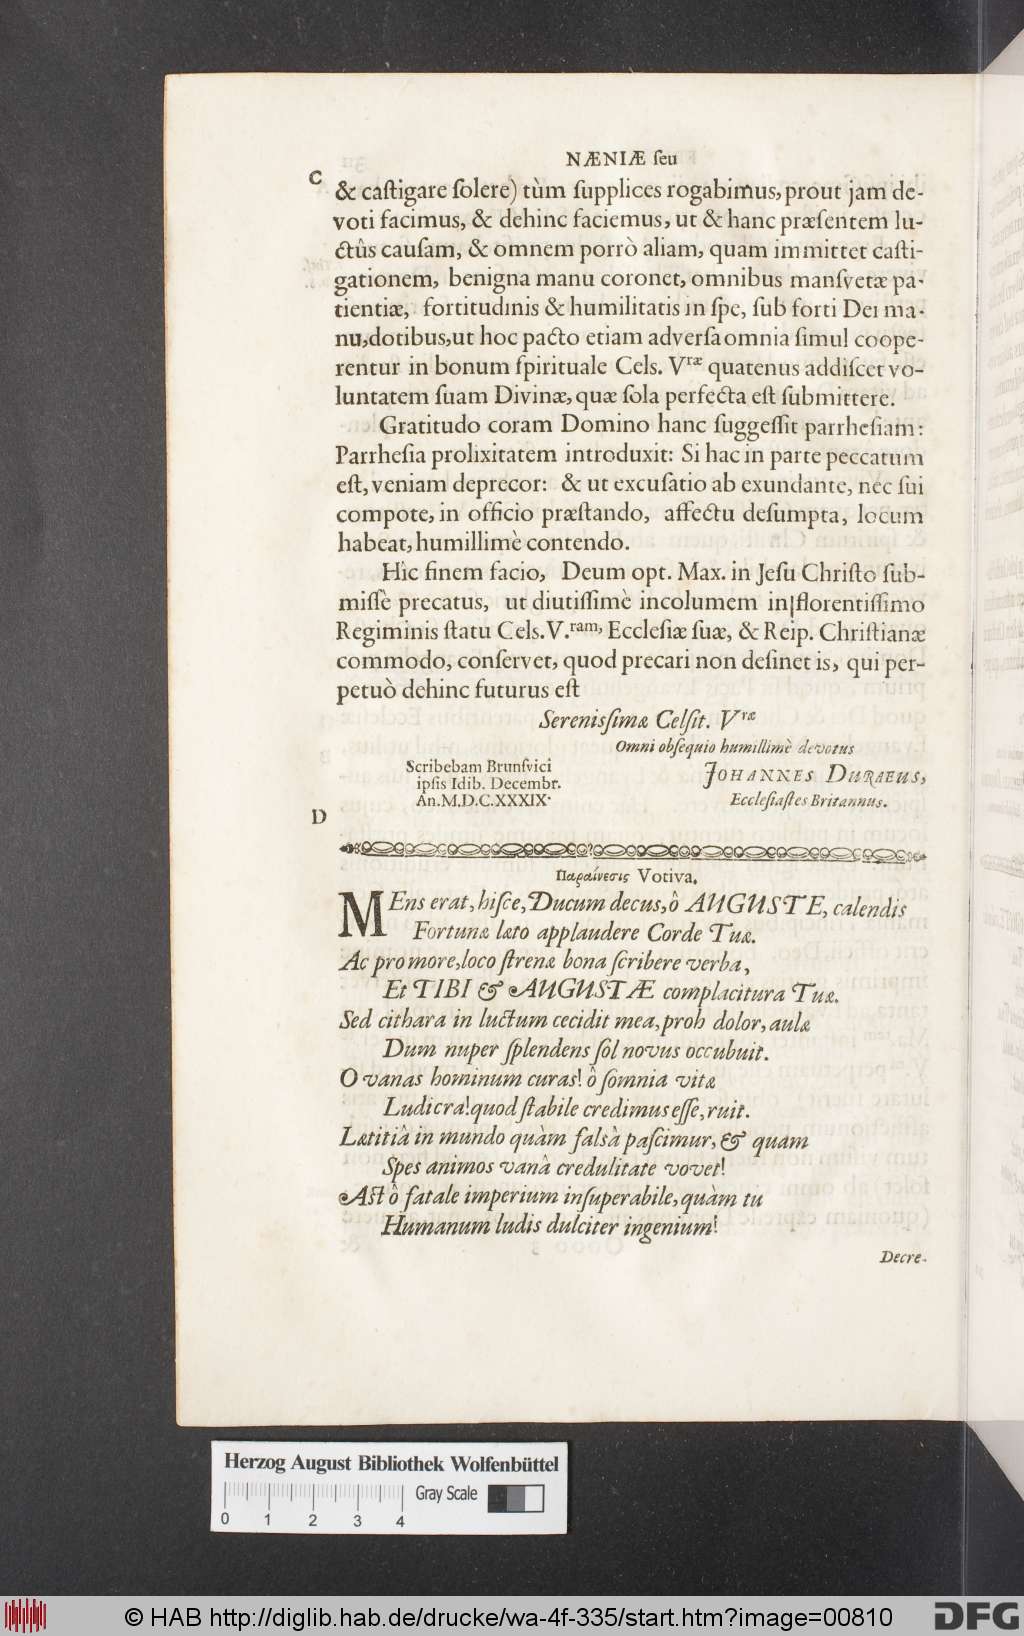 NÆNIÆ ſeu
C
& caſtigare ſolere) tùm ſupplices rogabimus, prout jam de-
voti facimus, & dehinc faciemus, ut & hanc præſentem lu-
ctûs cauſam, & omnem porrò aliam, quam immittet caſti-
gationem, benigna manu coronet, omnibus manſvetæ pa-
tientiæ, fortitudinis & humilitatis in ſpe, ſub forti Dei ma-
nu, dotibus, ut hoc pacto etiam adverſa omnia ſimul coope-
rentur in bonum ſpirituale Cels. Vræ quatenus addiſcet vo-
luntatem ſuam Divinæ, quæ ſola perfecta eſt ſubmittere.
Gratitudo coram Domino hanc ſuggeſſit parrheſiam:
Parrheſia prolixitatem introduxit: Si hac in parte peccatum
eſt, veniam deprecor: & ut excuſatio ab exundante, nec ſui
compote, in officio præſtando, affectu deſumpta, locum
habeat, humillimè contendo.
Hîc finem facio, Deum opt. Max. in Jeſu Chriſto ſub-
miſſè precatus, ut diutiſſimè incolumem in florentiſſimo
Regiminis ſtatu Cels. V.ram, Eccleſiæ ſuæ, & Reip. Chriſtianæ
commodo, conſervet, quod precari non deſinet is, qui per-
petuò dehinc futurus eſt
Sereniſſimæ Celſit. Vræ
Omni obſequio humillimè devotus
Scribebam Brunſvici
JOHANNES DURAEUS,
ipſis Idib. Decembr.
An. M.D.C.XXXIX.
Eccleſiaſtes Britannus.
D
Παραίνεσις Votiva.
MEns erat, hiſce, Ducum decus, ô AUGUSTE, calendis
Fortunæ læto applaudere Corde Tuæ.
Ac pro more, loco ſtrenæ bona ſcribere verba,
Et TIBI & AUGUSTÆ complacitura Tuæ.
Sed cithara in luctum cecidit mea, proh dolor, aulæ
Dum nuper ſplendens ſol novus occubuit.
O vanas hominum curas! ô ſomnia vitæ
Ludicra! quod ſtabile credimus eſſe, ruit.
Lætitiâ in mundo quàm falsâ paſcimur, & quam
Spes animos vanâ credulitate vovet!
Aſt ô fatale imperium inſuperabile, quàm tu
Humanum ludis dulciter ingenium!
Decre-
Herzog August Bibliothek Wolfenbüttel
Gray Scale
0 1 2 3 4
© HAB http://diglib.hab.de/drucke/wa-4f-335/start.htm?image=00810
DFG